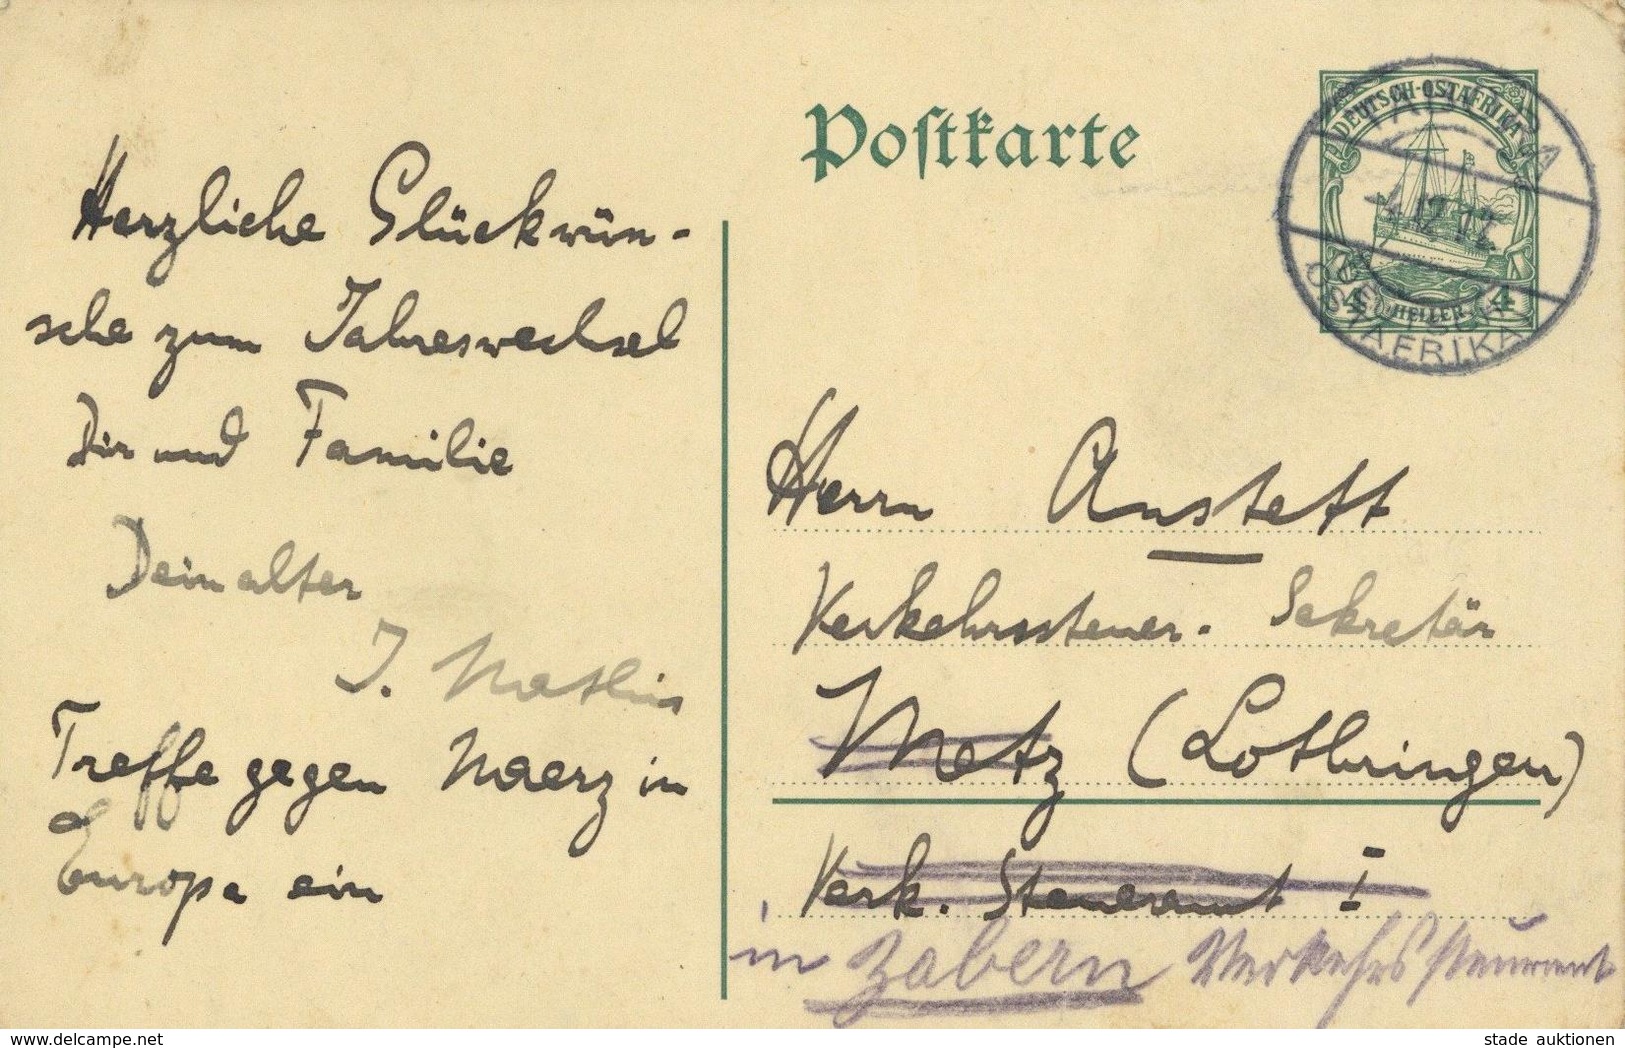 Herzliche Glückwün-
sche zum Jahreswechsel
Dir und Familie
Dein alter
J. Mathis
Treffe gegen Maerz in
Europa ein
Postkarte
DEUTSCH-OSTAFRIKA
4 HELLER 4
TANGA
4.12.12
DEUTSCH
OSTAFRIKA
Herrn Anstett
Verkehrssteuer-Sekretär
Metz (Lothringen)
Verk. Steueramt I
in Zabern Verkehrssteueramt
www.delcampe.net
stade auktionen